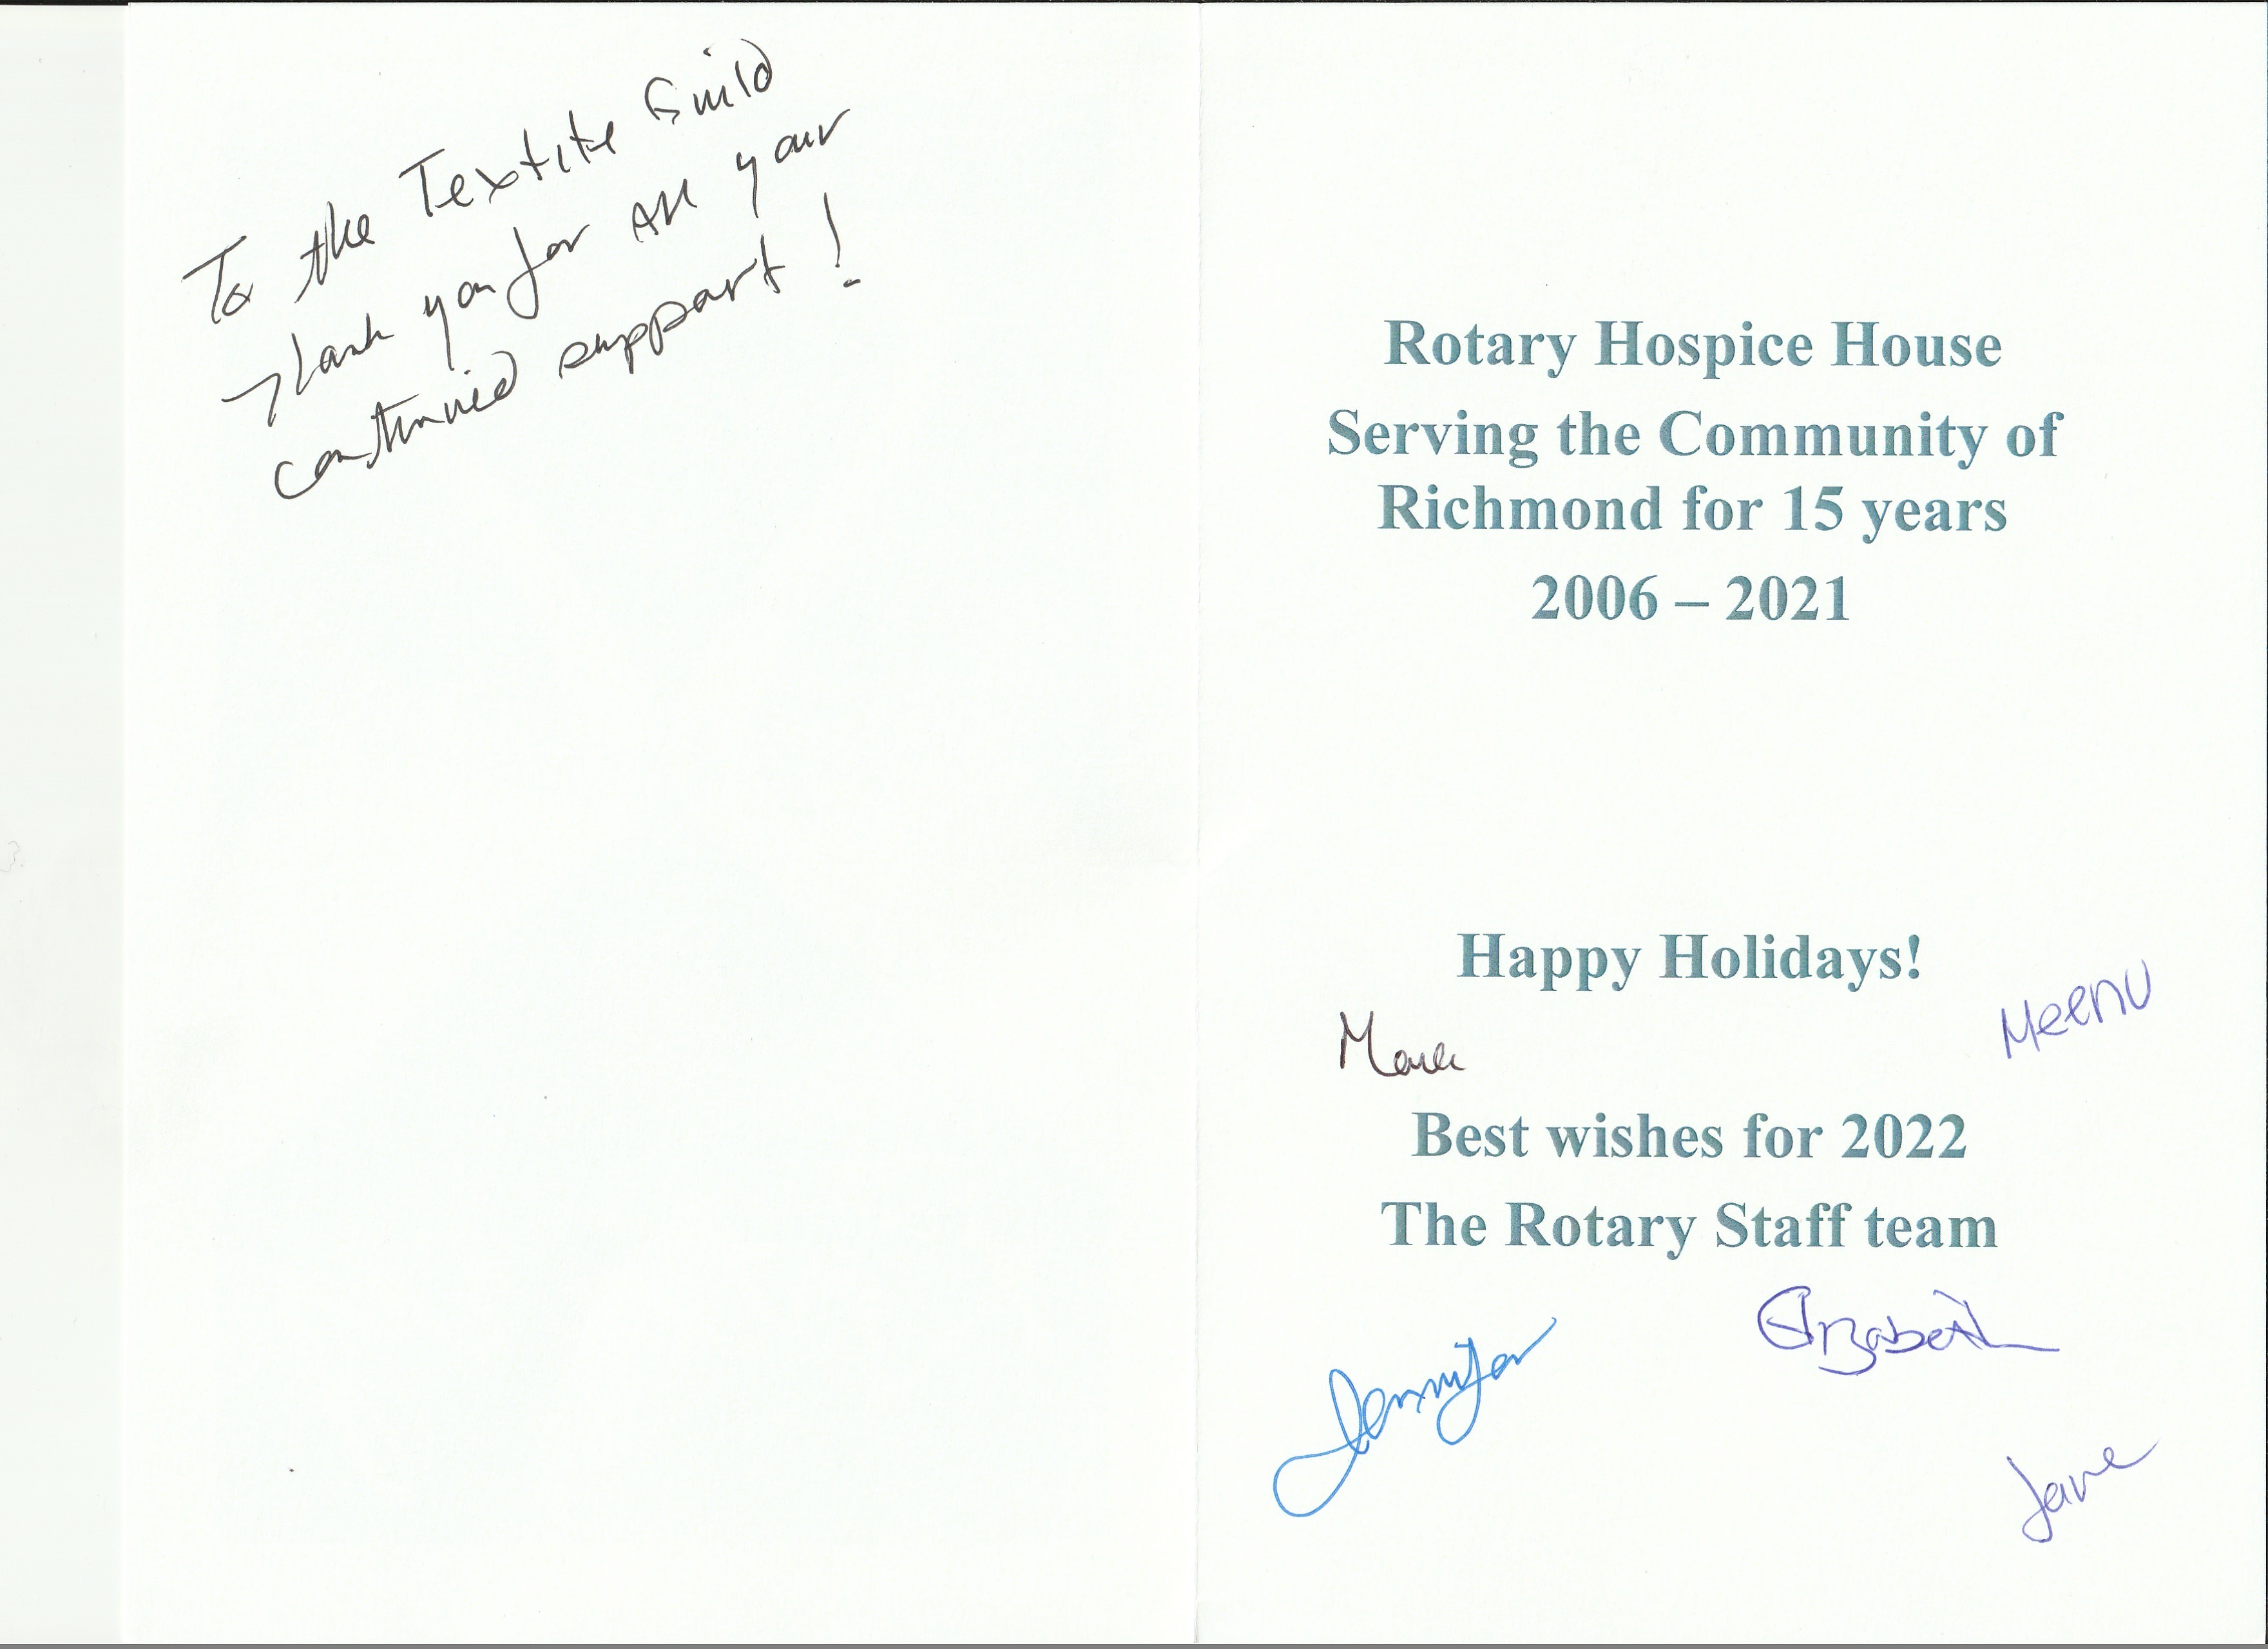 To the Textile Guild
Thank you for all your
continued support!
Rotary Hospice House
Serving the Community of
Richmond for 15 years
2006 – 2021
Happy Holidays!
Meenu
Best wishes for 2022
The Rotary Staff team
Elizabeth
Jennifer
Jane